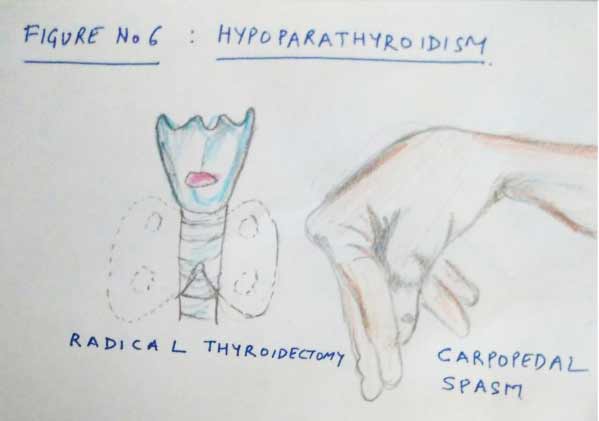 FIGURE No 6 : HYPOPARATHYROIDISM
RADICAL THYROIDECTOMY
CARPOPEDAL
SPASM